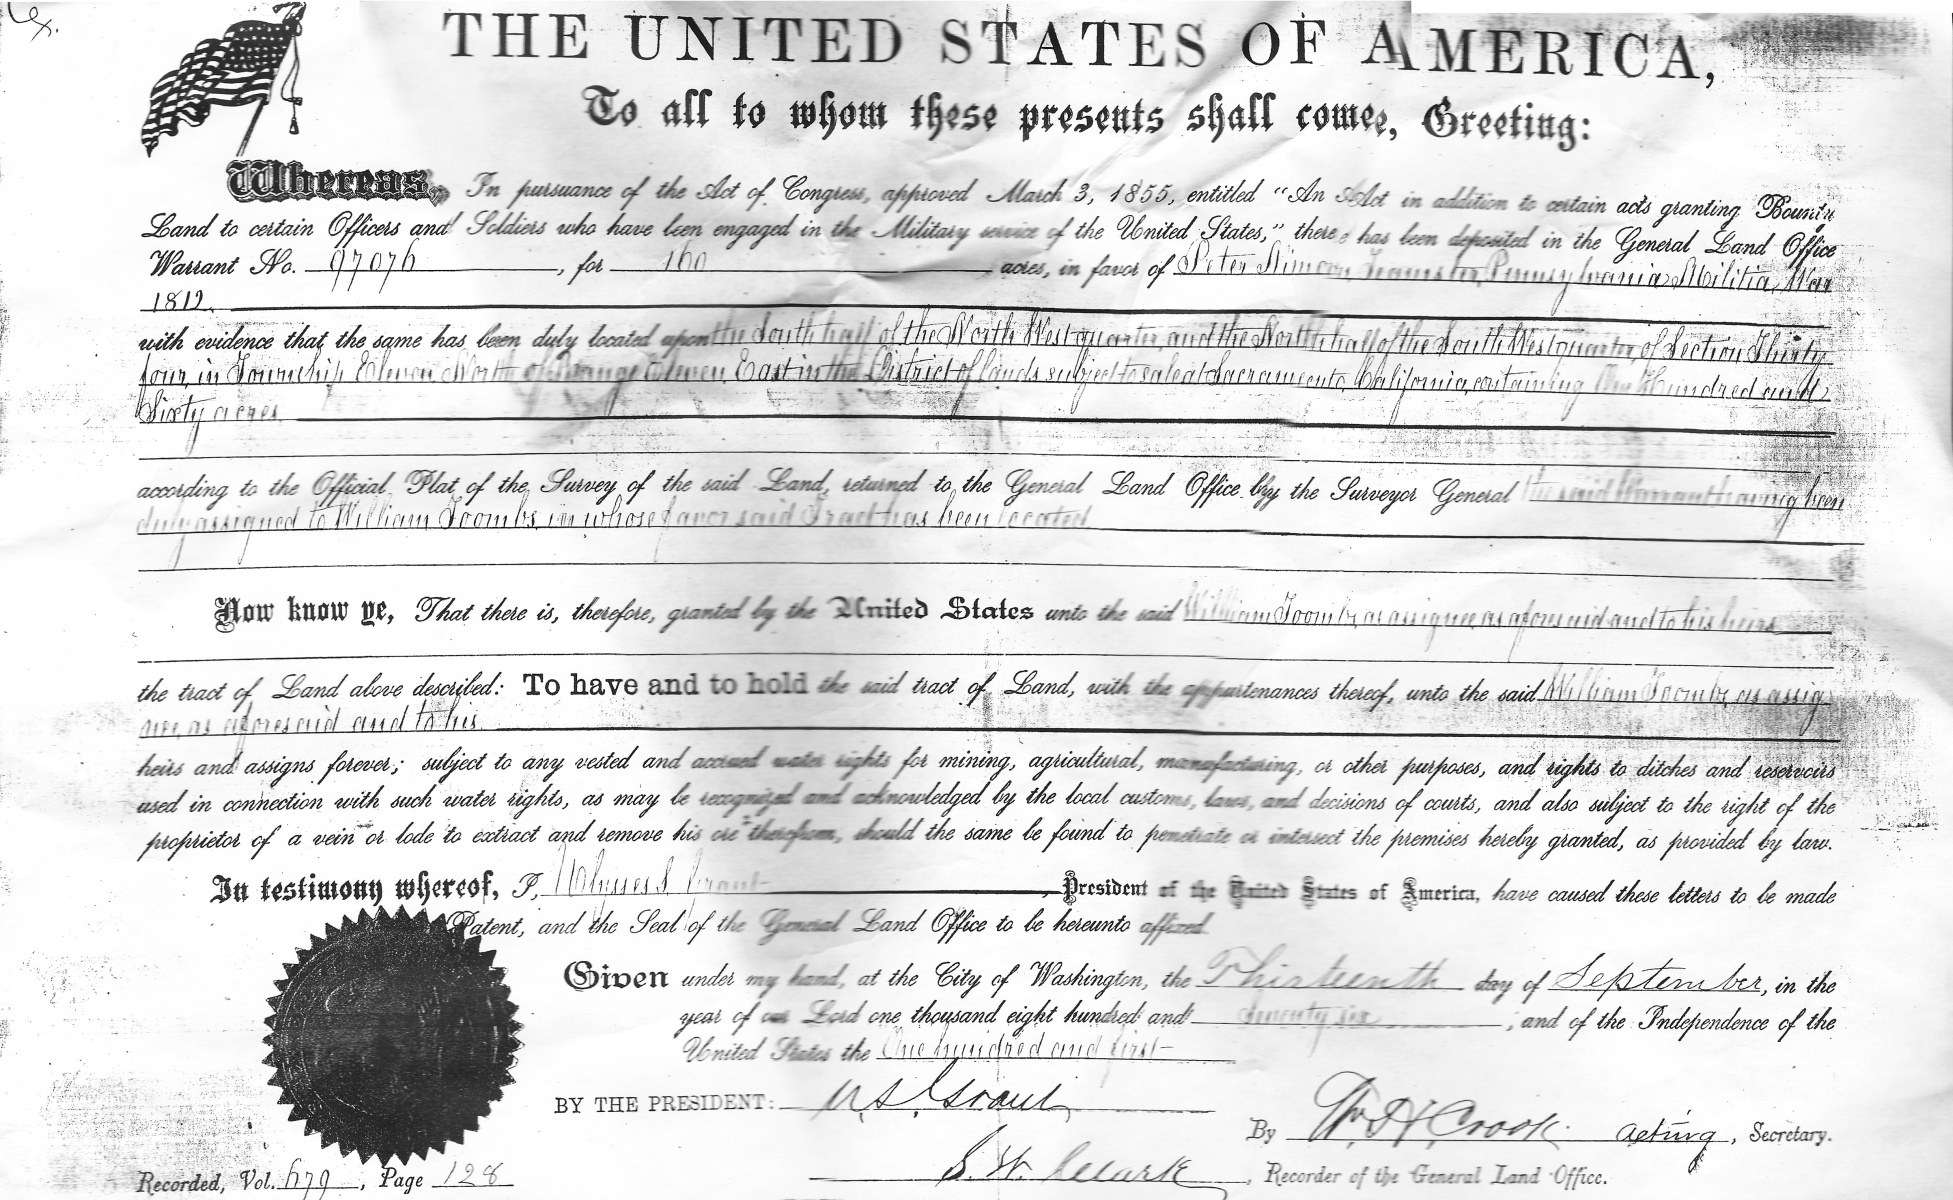 THE UNITED STATES OF AMERICA,
To all to whom these presents shall come, Greeting:
Whereas, In pursuance of the Act of Congress, approved March 3, 1855, entitled "An Act in addition to certain acts granting Bounty
Land to certain Officers and Soldiers who have been engaged in the Military service of the United States," there has been deposited in the General Land Office
Warrant No. 97076, for 160 acres, in favor of Peter Simcon, Teamster, Pennsylvania Militia, War
1812.
with evidence that the same has been duly located upon the South half of the North West quarter, and the North half of the South West quarter, of Section Thirty
four, in Township Eleven North of Range Eleven East in the District of lands subject to sale at Sacramento, California, containing One Hundred and
Sixty acres
according to the Official Plat of the Survey of the said Land, returned to the General Land Office by the Surveyor General the said Warrant having been
duly assigned to William Toombs, in whose favor said Tract has been located
Now know ye, That there is, therefore, granted by the United States unto the said William Toombs, as assignee as aforesaid and to his heirs
the tract of Land above described: To have and to hold the said tract of Land, with the appurtenances thereof, unto the said William Toombs, as assig
nee, as aforesaid and to his
heirs and assigns forever; subject to any vested and accrued water rights for mining, agricultural, manufacturing, or other purposes, and rights to ditches and reservoirs
used in connection with such water rights, as may be recognized and acknowledged by the local customs, laws, and decisions of courts, and also subject to the right of the
proprietor of a vein or lode to extract and remove his ore therefrom, should the same be found to penetrate or intersect the premises hereby granted, as provided by law.
In testimony whereof, I, Ulysses S. Grant, President of the United States of America, have caused these letters to be made
Patent, and the Seal of the General Land Office to be hereunto affixed.
Given under my hand, at the City of Washington, the Thirteenth day of September, in the
year of our Lord one thousand eight hundred and seventy six, and of the Independence of the
United States the One hundred and first
BY THE PRESIDENT: U. S. Grant
By Wm H Crook acting, Secretary.
S. W. Clark, Recorder of the General Land Office.
Recorded, Vol. 679, Page 128